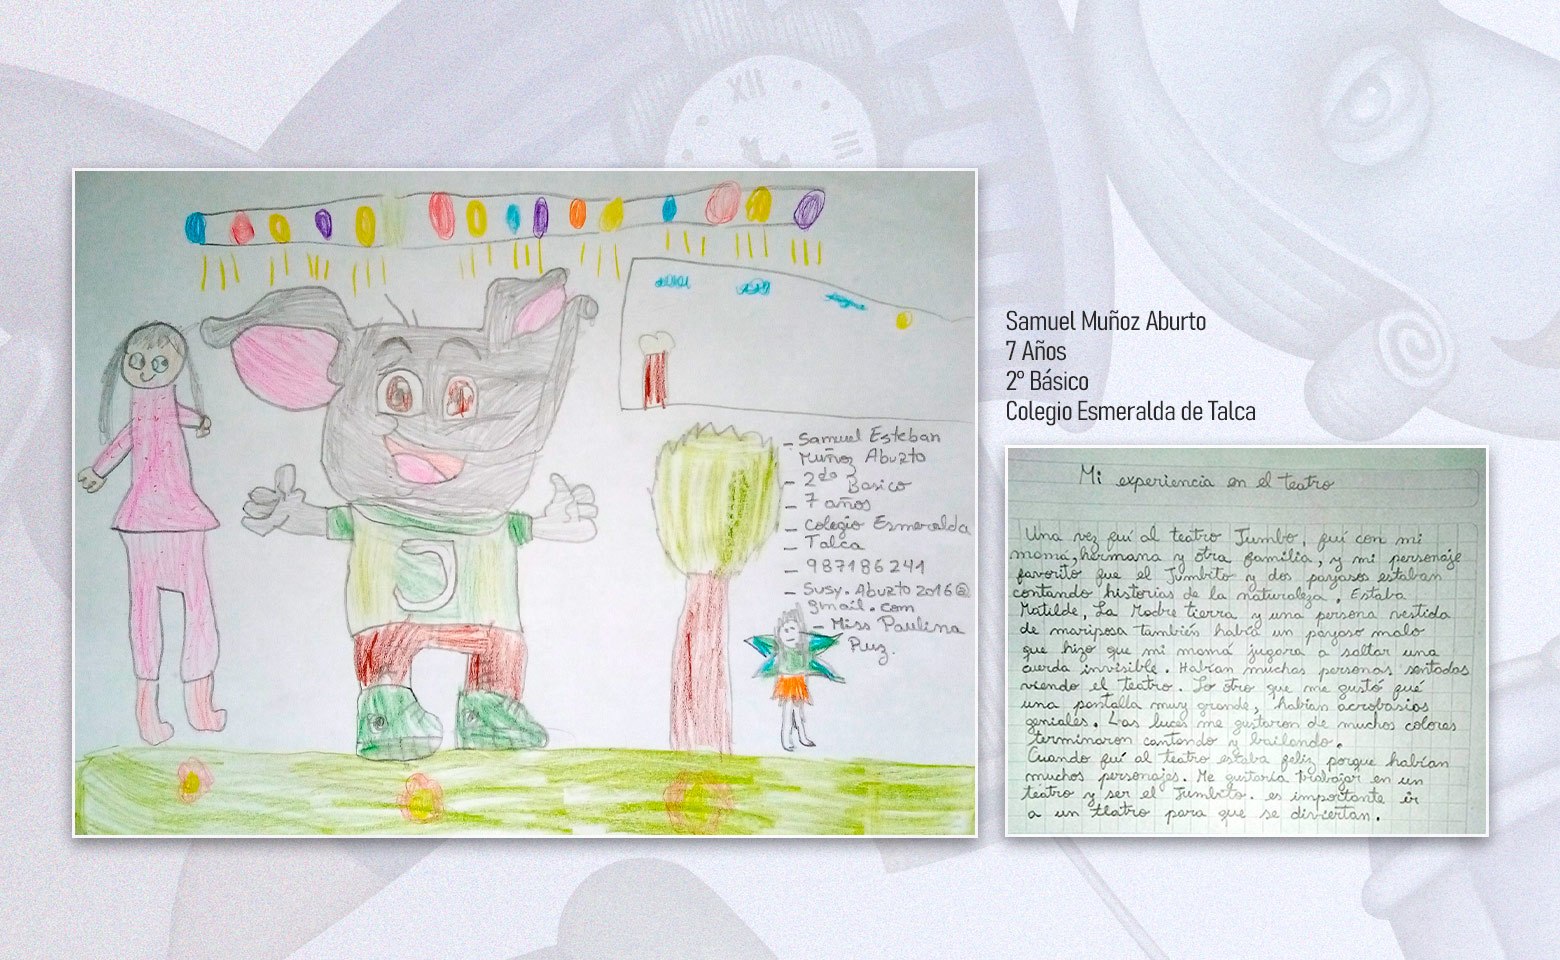 XII
III
Samuel Esteban
Muñoz Abuzto
2do Basico
7 años
Colegio Esmeralda
Talca
987186241
Susy.Abuzto2016@
gmail.com
Miss Paulina
Ruz.
Samuel Muñoz Aburto
7 Años
2° Básico
Colegio Esmeralda de Talca
Mi experiencia en el teatro
Una vez fuí al teatro Jumbo, fuí con mi
mamá, hermana y otra familia, y mi personaje
favorito fue el Jumbito y dos payasos estaban
contando historias de la naturaleza. Estaba
Matilde, La Madre tierra y una persona vestida
de mariposa también había un payaso malo
que hizo que mi mamá jugara a saltar una
cuerda invisible. Habían muchas personas sentadas
viendo el teatro. Lo otro que me gustó fué
una pantalla muy grande, habían acrobasias
geniales. Las luces me gustaron de muchos colores
terminaron cantando y bailando.
Cuando fuí al teatro estaba feliz porque habían
muchos personajes. Me gustaría trabajar en un
teatro y ser el Jumbito. es importante ir
a un teatro para que se diviertan.